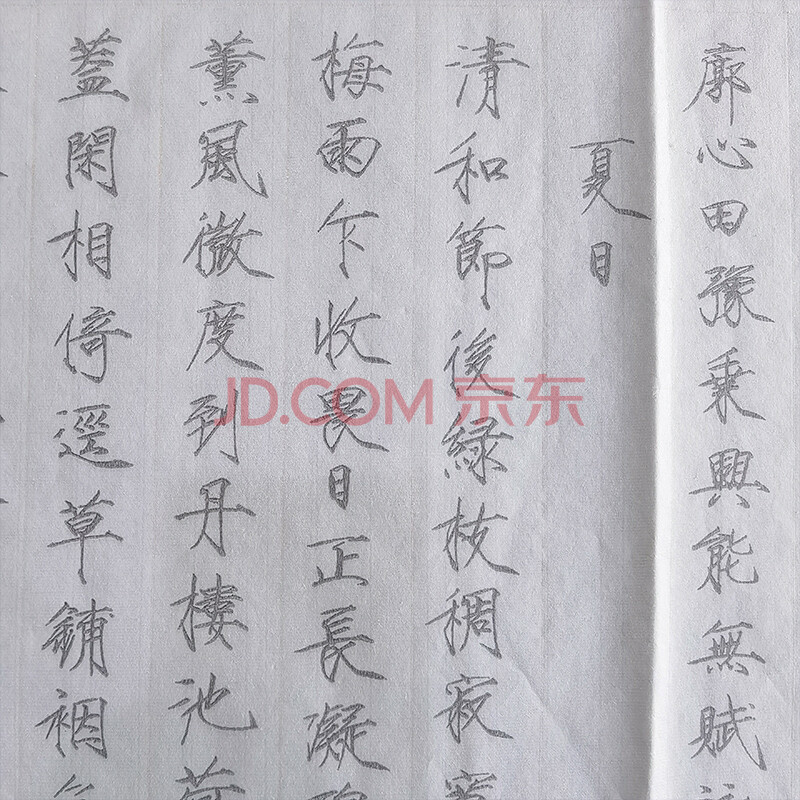 廓心田豫乘興能無賦
夏日
清和節後綠枝稠寂
梅雨乍收畏日正長凝
薰風微度到丹樓池荷
蓋閑相倚逕草鋪裀
JD.COM 京东